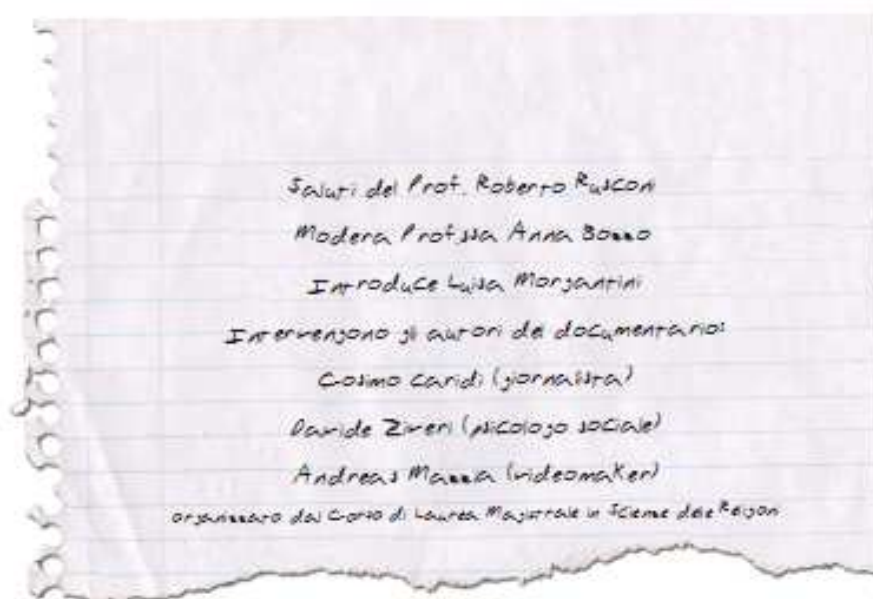 Saluti del Prof. Roberto Rusconi
Modera Prof.ssa Anna Bozzo
Introduce Luisa Morgantini
Intervengono gli autori del documentario:
Cosimo Caridi (giornalista)
Davide Zireri (psicologo sociale)
Andreas Mazza (videomaker)
organizzato dal Corso di Laurea Magistrale in Scienze delle Religioni